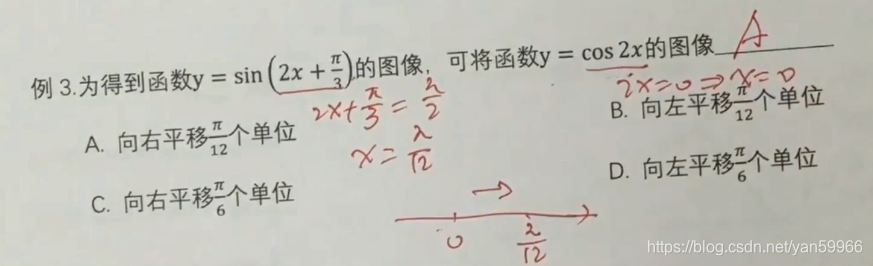 例 3.为得到函数y = sin(2x + π/3)的图像，可将函数y = cos 2x的图像 A
2x+π/3 = π/2
2x=0 ⇒ x=0
A. 向右平移π/12个单位
B. 向左平移π/12个单位
x = π/12
C. 向右平移π/6个单位
D. 向左平移π/6个单位
→
0 π/12
https://blog.csdn.net/yan59966